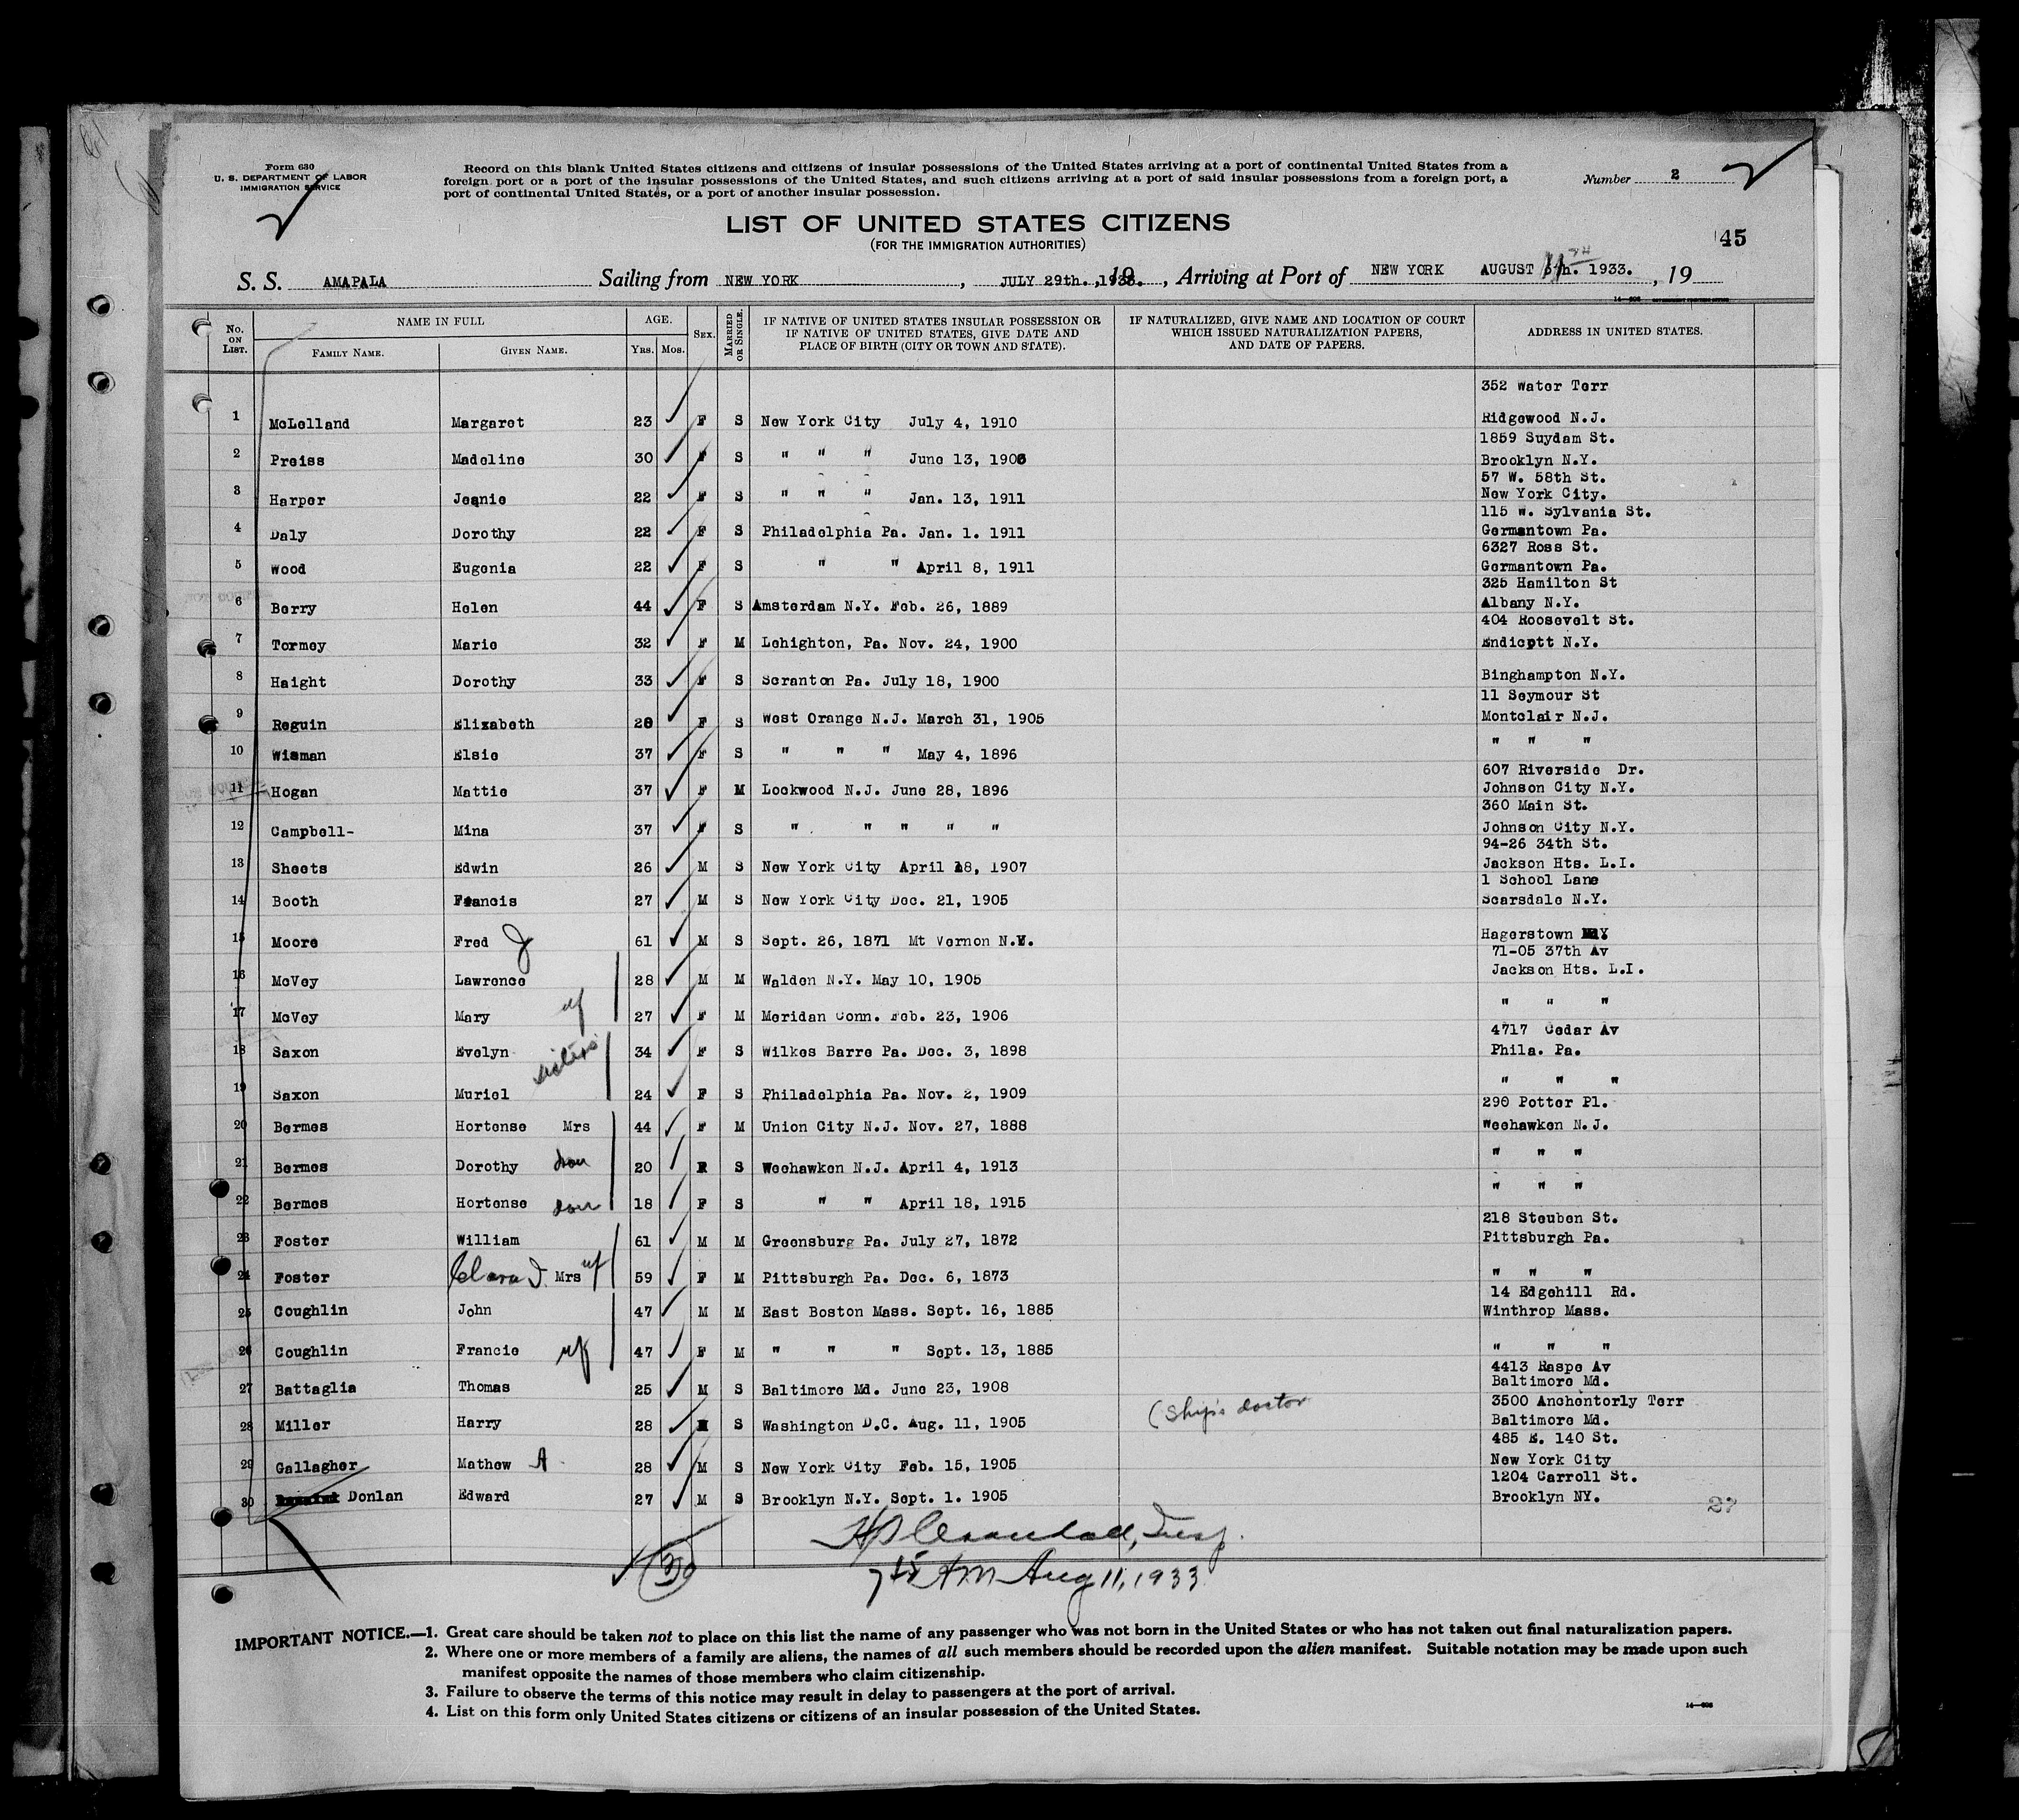 Form 630
U. S. DEPARTMENT OF LABOR
IMMIGRATION SERVICE
Record on this blank United States citizens and citizens of insular possessions of the United States arriving at a port of continental United States from a
foreign port or a port of the insular possessions of the United States, and such citizens arriving at a port of said insular possessions from a foreign port, a
port of continental United States, or a port of another insular possession.
Number 2
LIST OF UNITED STATES CITIZENS
(FOR THE IMMIGRATION AUTHORITIES)
45
S. S. AMAPALA Sailing from NEW YORK , JULY 29th. ,1933. , Arriving at Port of NEW YORK AUGUST 11th. 1933. , 19
No. ON LIST. NAME IN FULL FAMILY NAME. GIVEN NAME. AGE. Yrs. Mos. SEX. MARRIED OR SINGLE. IF NATIVE OF UNITED STATES INSULAR POSSESSION OR IF NATIVE OF UNITED STATES, GIVE DATE AND PLACE OF BIRTH (CITY OR TOWN AND STATE). IF NATURALIZED, GIVE NAME AND LOCATION OF COURT WHICH ISSUED NATURALIZATION PAPERS, AND DATE OF PAPERS. ADDRESS IN UNITED STATES.
352 Water Terr
1 McLelland Margaret 23 F S New York City July 4, 1910 Ridgewood N.J.
1859 Suydam St.
2 Preiss Madeline 30 F S " " " June 13, 1903 Brooklyn N.Y.
57 W. 58th St.
3 Harper Jeanie 22 F S " " " Jan. 13, 1911 New York City.
115 W. Sylvania St.
4 Daly Dorothy 22 F S Philadelphia Pa. Jan. 1. 1911 Germantown Pa.
6327 Ross St.
5 Wood Eugenia 22 F S " " April 8, 1911 Germantown Pa.
325 Hamilton St
6 Berry Helen 44 F S Amsterdam N.Y. Feb. 26, 1889 Albany N.Y.
404 Roosevelt St.
7 Tormey Marie 32 F M Lehighton, Pa. Nov. 24, 1900 Endicott N.Y.
8 Haight Dorothy 33 F S Scranton Pa. July 18, 1900 Binghampton N.Y.
11 Seymour St
9 Reguin Elizabeth 28 F S West Orange N.J. March 31, 1905 Montclair N.J.
10 Wisman Elsie 37 F S " " " May 4, 1896 " " "
607 Riverside Dr.
11 Hogan Mattie 37 F M Lockwood N.J. June 28, 1896 Johnson City N.Y.
360 Main St.
12 Campbell- Mina 37 F S " " " " " Johnson City N.Y.
94-26 34th St.
13 Sheets Edwin 26 M S New York City April 18, 1907 Jackson Hts. L.I.
1 School Lane
14 Booth Francis 27 M S New York City Dec. 21, 1905 Scarsdale N.Y.
15 Moore Fred J 61 M S Sept. 26, 1871 Mt Vernon N.Y. Hagerstown
71-05 37th Av
16 McVey Lawrence 28 M M Walden N.Y. May 10, 1905 Jackson Hts. L.I.
17 McVey Mary wf 27 F M Meridan Conn. Feb. 23, 1906 " " "
4717 Cedar Av
18 Saxon Evelyn sisters 34 F S Wilkes Barre Pa. Dec. 3, 1898 Phila. Pa.
19 Saxon Muriel 24 F S Philadelphia Pa. Nov. 2, 1909 " " "
290 Potter Pl.
20 Bermes Hortense Mrs 44 F M Union City N.J. Nov. 27, 1888 Weehawken N.J.
21 Bermes Dorothy dau 20 F S Weehawken N.J. April 4, 1913 " " "
22 Bermes Hortense dau 18 F S " " April 18, 1915 " " "
218 Steuben St.
23 Foster William 61 M M Greensburg Pa. July 27, 1872 Pittsburgh Pa.
24 Foster Clara J. Mrs wf 59 F M Pittsburgh Pa. Dec. 6, 1873 " " "
14 Edgehill Rd.
25 Coughlin John 47 M M East Boston Mass. Sept. 16, 1885 Winthrop Mass.
26 Coughlin Francie wf 47 F M " " " Sept. 13, 1885 " " "
4413 Raspe Av
27 Battaglia Thomas 25 M S Baltimore Md. June 23, 1908 Baltimore Md.
3500 Anchentorly Terr
28 Miller Harry 28 M S Washington D.C. Aug. 11, 1905 (Ship's doctor Baltimore Md.
485 E. 140 St.
29 Gallagher Mathew A 28 M S New York City Feb. 15, 1905 New York City
1204 Carroll St.
30 Donlan Edward 27 M S Brooklyn N.Y. Sept. 1. 1905 Brooklyn NY.
27
Insp.
30
7 15 AM Aug 11, 1933
IMPORTANT NOTICE.—1. Great care should be taken not to place on this list the name of any passenger who was not born in the United States or who has not taken out final naturalization papers.
2. Where one or more members of a family are aliens, the names of all such members should be recorded upon the alien manifest. Suitable notation may be made upon such
manifest opposite the names of those members who claim citizenship.
3. Failure to observe the terms of this notice may result in delay to passengers at the port of arrival.
4. List on this form only United States citizens or citizens of an insular possession of the United States.